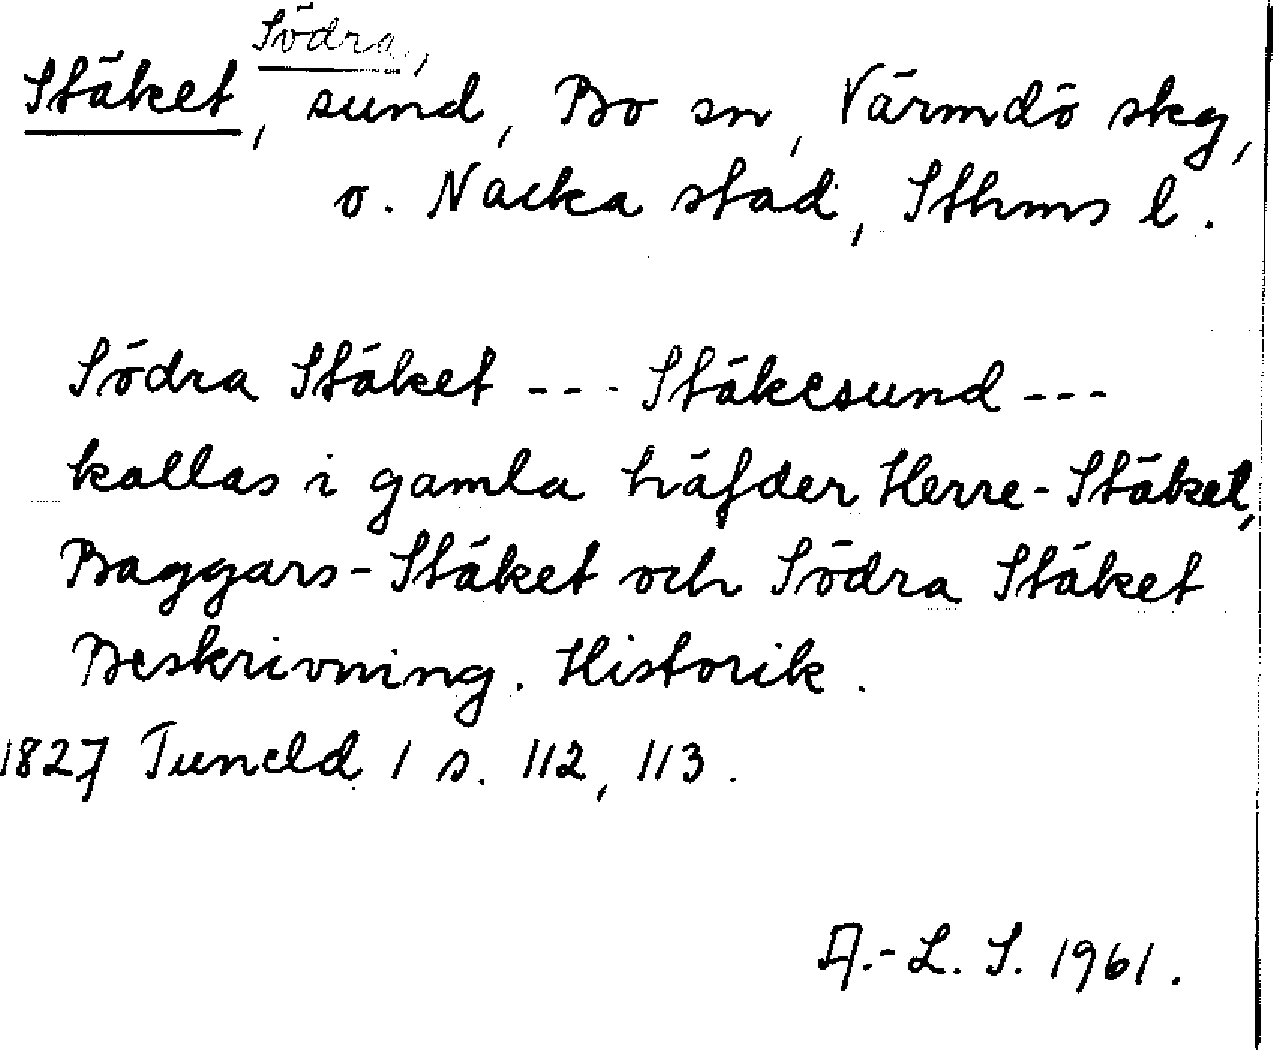 Södra,
Stäket, sund, Bo sn, Värmdö skg,
o. Nacka stad, Sthms l.
Södra Stäket --- Stäkesund ---
kallas i gamla häfder Herre-Stäket,
Baggars-Stäket och Södra Stäket
Beskrivning. Historik.
1827 Tuneld 1 s. 112, 113.
A.-L. S. 1961.